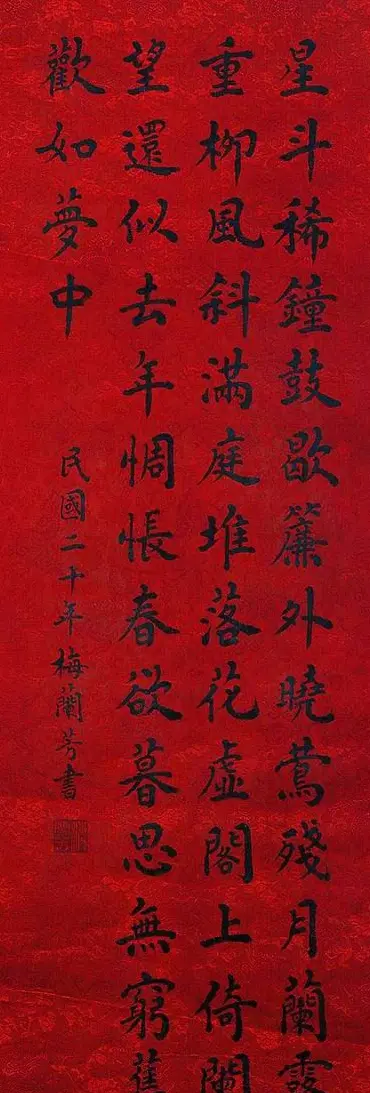 星斗稀鐘鼓歇簾外曉鶯殘月蘭露
重柳風斜滿庭堆落花虛閣上倚闌
望還似去年惆悵春欲暮思無窮舊
歡如夢中
民國二十年梅蘭芳書